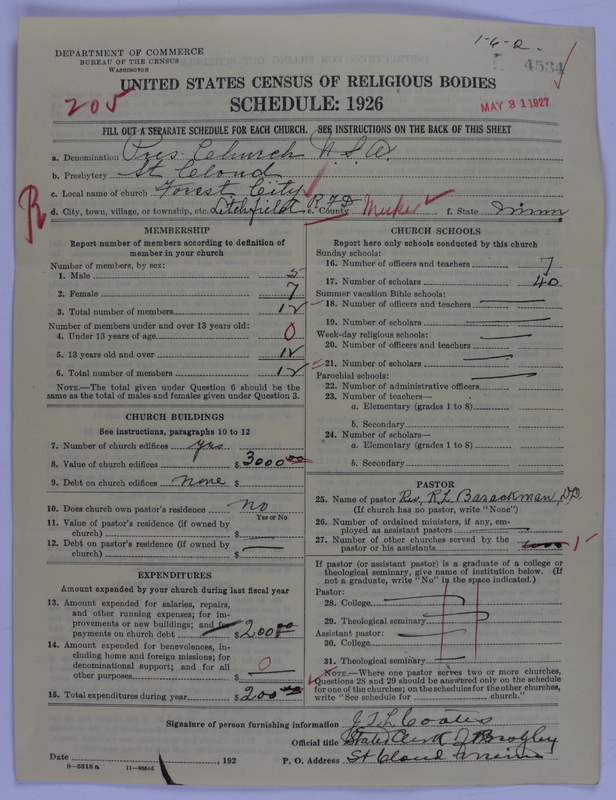 1-6-2.
4534
DEPARTMENT OF COMMERCE
BUREAU OF THE CENSUS
WASHINGTON
205
UNITED STATES CENSUS OF RELIGIOUS BODIES
SCHEDULE: 1926
MAY 31 1927
FILL OUT A SEPARATE SCHEDULE FOR EACH CHURCH. SEE INSTRUCTIONS ON THE BACK OF THIS SHEET
a. Denomination Pres. Church U.S.A.
b. Presbytery St Cloud
c. Local name of church Forest City
d. City, town, village, or township, etc. Litchfield R F D e. County Meeker f. State Minn
R
MEMBERSHIP
Report number of members according to definition of member in your church
Number of members, by sex:
1. Male 5
2. Female 7
3. Total number of members 12
Number of members under and over 13 years old:
4. Under 13 years of age 0
5. 13 years old and over 12
6. Total number of members 12
NOTE.—The total given under Question 6 should be the same as the total of males and females given under Question 3.
CHURCH BUILDINGS
See instructions, paragraphs 10 to 12
7. Number of church edifices yes
8. Value of church edifices $ 3000 00
9. Debt on church edifices none $
10. Does church own pastor's residence no
Yes or No
11. Value of pastor's residence (if owned by church) $
12. Debt on pastor's residence (if owned by church) $
EXPENDITURES
Amount expended by your church during last fiscal year
13. Amount expended for salaries, repairs, and other running expenses; for improvements or new buildings; and for payments on church debt $ 200 00
14. Amount expended for benevolences, including home and foreign missions; for denominational support; and for all other purposes $ 0
15. Total expenditures during year $ 200
CHURCH SCHOOLS
Report here only schools conducted by this church
Sunday schools:
16. Number of officers and teachers 7
17. Number of scholars 40
Summer vacation Bible schools:
18. Number of officers and teachers
19. Number of scholars
Week-day religious schools:
20. Number of officers and teachers
21. Number of scholars
Parochial schools:
22. Number of administrative officers
23. Number of teachers—
a. Elementary (grades 1 to 8)
b. Secondary
24. Number of scholars—
a. Elementary (grades 1 to 8)
b. Secondary
PASTOR
25. Name of pastor Rev. R.L. Barackman, D.D.
(If church has no pastor, write "None")
26. Number of ordained ministers, if any, employed as assistant pastors
27. Number of other churches served by the pastor or his assistants 1
If pastor (or assistant pastor) is a graduate of a college or theological seminary, give name of institution below. (If not a graduate, write "No" in the space indicated.)
Pastor:
28. College
29. Theological seminary
Assistant pastor:
30. College
31. Theological seminary
NOTE.—Where one pastor serves two or more churches, Questions 28 and 29 should be answered only on the schedule for one of the churches; on the schedules for the other churches, write "See schedule for church."
Signature of person furnishing information J.T.L. Coates
Official title Stated Clerk
Date , 192
P. O. Address St Cloud Minn
8-5518 a